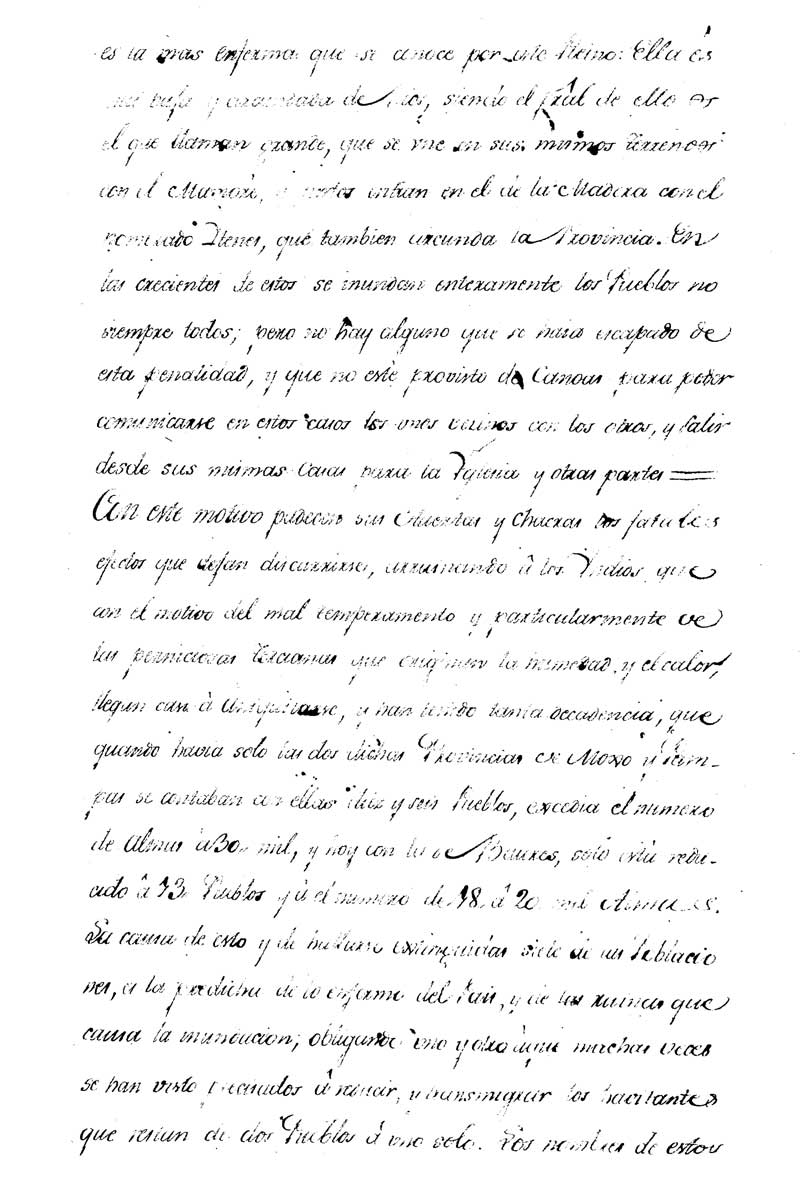 es la mas enferma que se conoce por este Reino: Ella és
muy baja y de Rios, siendo el prâl de ellos
el que llaman grande, que se une en sus mismos terrenos
con el Mamoré, y juntos entran en el de la Madera con el
nominado Itenes, que tambien circunda la Provincia. En
las crecientes de estos se inundan enteramente los Pueblos no
siempre todos; pero no hay alguno que se haia escapado de
esta penalidad, y que no esté provisto de Canoas para poder
comunicarse en estos casos los unos vecinos con los otros, y salir
desde sus mismas Casas para la Yglesia y otras partes =
Con este motivo padecen sus Haciendas y Chacras los fatales
efectos que dejan discurrirse, arruinando â los Yndios que
con el motivo del mal temperamento y particularmente de
las perniciosas tercianas que originan la humedad, y el calor,
llegan casi à aniquilarse, y han tenido tanta decadencia, que
quando havia solo las dos dichas Provincias de Moxo y Pam-
pas se contaban con ellas diez y seis Pueblos, excedia el numero
de Almas a 30. mil, y hoy con la de Baures, solo está redu-
cido â 13. Pueblos y à el numero de 18. â 20. mil Almas.
La causa de esto y de hallarse extinguidas siete de sus Poblacio
nes, es la predicha de lo enfermo del Pais, y de las ruinas que
causa la inundacion; obligando uno y otro àque muchas veces
se han visto precisados â reducir, y transmigrar los havitantes
que tenian de dos Pueblos â uno solo. Los nombres de estos